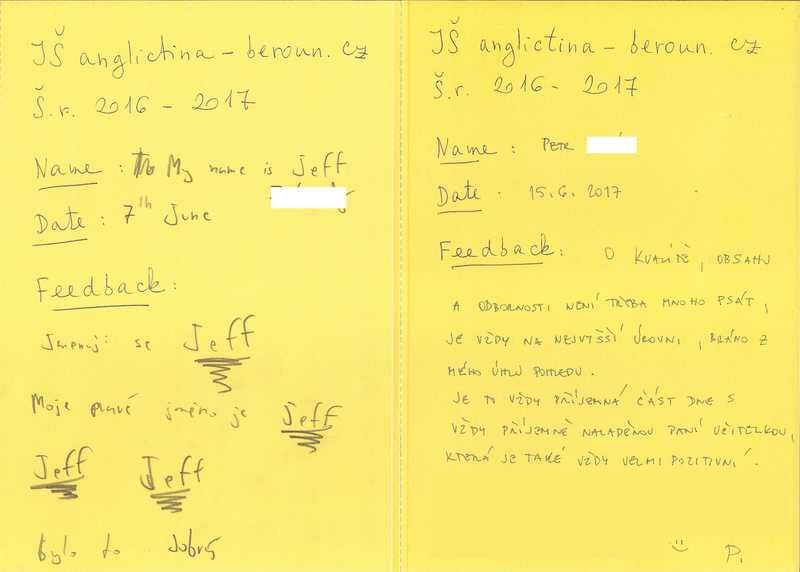 JŠ anglictina - beroun. cz
Š.r. 2016 - 2017
Name : My name is Jeff
Date : 7th June
Feedback :
Jmenuji se Jeff
Moje pravé jméno je Jeff
Jeff Jeff
bylo to dobrý
JŠ anglictina - beroun. cz
Š.r. 2016 - 2017
Name : PETR
Date . 15.6. 2017
Feedback : O KVALITĚ, OBSAHU
A ODBORNOSTI NENÍ TŘEBA MNOHO PSÁT,
JE VŽDY NA NEJVYŠŠÍ ÚROVNI, BRÁNO Z
MÉHO ÚHLU POHLEDU.
JE TO VŽDY PŘÍJEMNÁ ČÁST DNE S
VŽDY PŘÍJEMNĚ NALADĚNOU PANÍ UČITELKOU,
KTERÁ JE TAKÉ VŽDY VELMI POZITIVNÍ.
P.